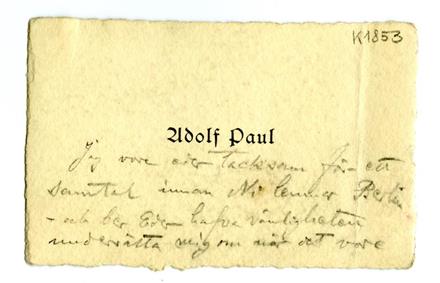 K1853
Adolf Paul
Jag vore eder tacksam för ett
samtal innan Ni lemnar Berlin
- och ber Eder hafva vänligheten
underrätta mig om när det vore